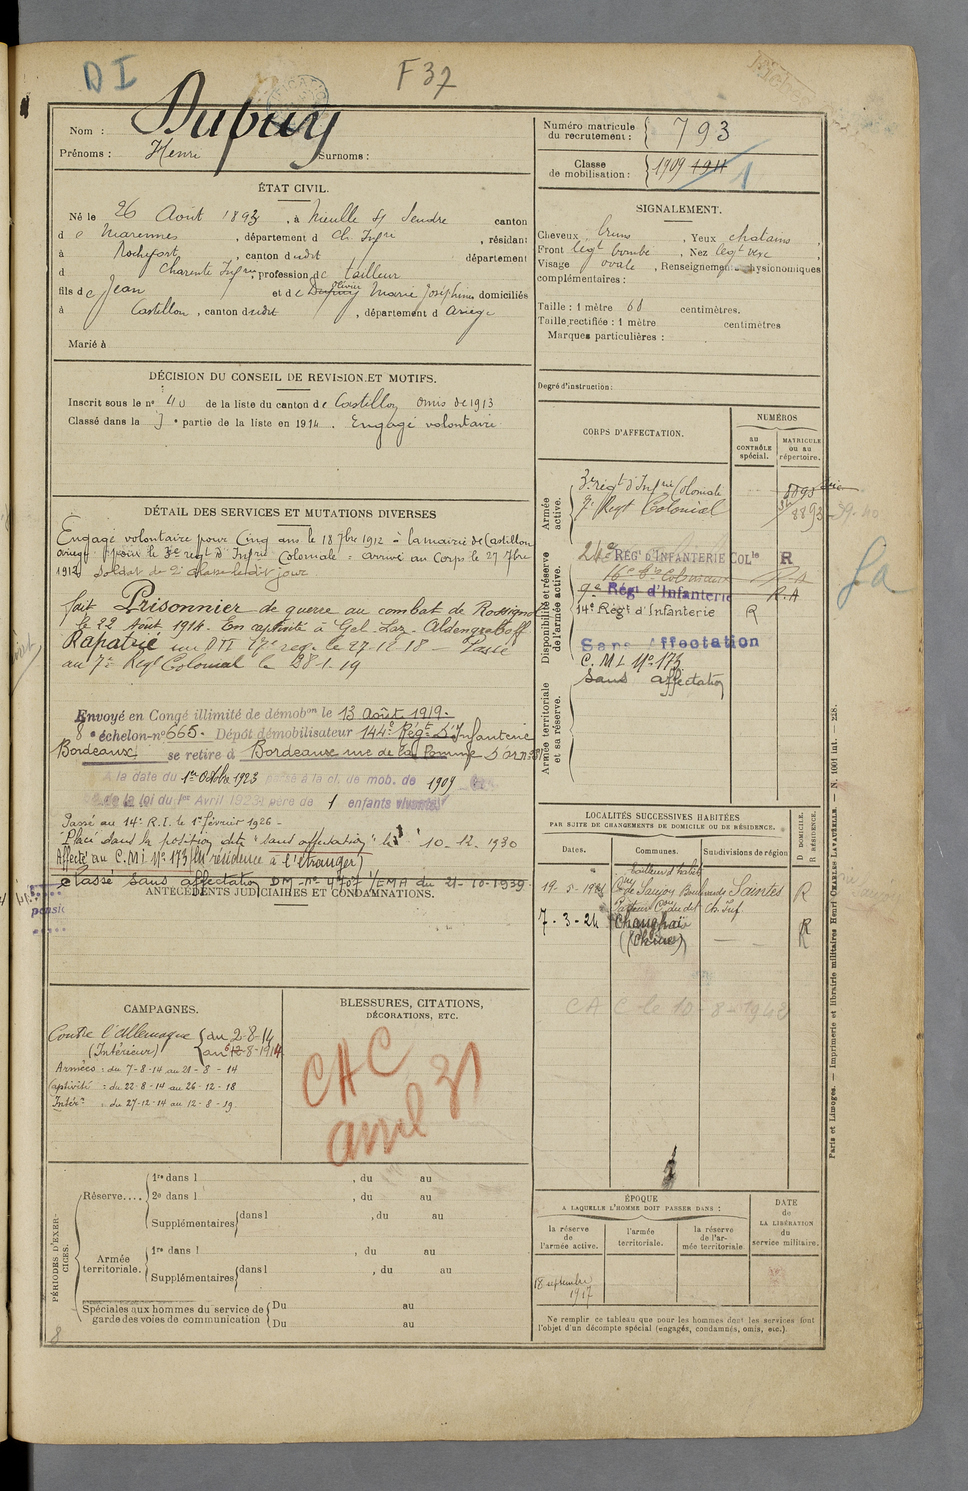 DI
F37
Nom : Dupuy
Prénoms : Henri Surnoms :
Numéro matricule du recrutement : 793
Classe de mobilisation : 1909 1911
1
ÉTAT CIVIL.
Né le 26 Août 1893, à Nieulle St Sendre canton
d e Marennes, département d Ch. Infre, résidant
à Rochefort, canton dudit département
d Charente Infre, profession de tailleur
fils de Jean et de Dupuy Marie Joséphine domiciliés
à Castillon, canton dudit, département d Ariège
Marié à
SIGNALEMENT.
Cheveux bruns, Yeux chatains,
Front légt bombé, Nez légt vexe
Visage ovale, Renseignements physionomiques
complémentaires :
Taille : 1 mètre 68 centimètres.
Taille rectifiée : 1 mètre centimètres
Marques particulières :
Degré d'instruction :
DÉCISION DU CONSEIL DE REVISION ET MOTIFS.
Inscrit sous le no 40 de la liste du canton de Castillon omis de 1913
Classé dans la 3e partie de la liste en 1914. Engagé volontaire
DÉTAIL DES SERVICES ET MUTATIONS DIVERSES
Engagé volontaire pour Cinq ans le 18 7bre 1912 à la mairie de Castillon
Ariège pour le 3e régt d'Infrie Coloniale : arrivé au Corps le 27 7bre
1912 soldat de 2e classe le dit jour
fait Prisonnier de guerre au combat de Rossignol
le 22 Août 1914. En captivité à
Rapatrié le 27-12-18 – Passé
au 7e Regt Colonial le 28-1-19
Envoyé en Congé illimité de démobon le 13 Août 1919.
8e échelon-no 665. Dépôt démobilisateur 144e Régt d'Infanterie
Bordeaux se retire à Bordeaux rue de la Pomme d'or
A la date du 1er Octobre 1923 passé à la cl. de mob. de 1909
de la loi du 1er Avril 1923 père de 1 enfants vivants
Passé au 14e R.I. le 1er février 1926 -
Placé dans la position dite "sans affectation" le 10-12-1930
Affecté au C.M.I. No 173 (en résidence à l'étranger)
Classé sans affectation DM-No 4707 1/EMA du 21-10-1939.
CORPS D'AFFECTATION.
NUMÉROS
au CONTRÔLE spécial.
MATRICULE ou au répertoire.
Armée active.
3e régt d'Infrie Coloniale
7e Regt Colonial
8893
Disponibilité et réserve de l'armée active.
RÉGt D'INFANTERIE COLle R
R.A
Régt d'Infanterie R.A
14e Régt d'Infanterie R
Sans Affectation
C.M.I. No 173
sans affectation
Armée territoriale et sa réserve.
LOCALITÉS SUCCESSIVES HABITÉES
PAR SUITE DE CHANGEMENTS DE DOMICILE OU DE RÉSIDENCE.
D DOMICILE. R RÉSIDENCE.
Dates. Communes. Subdivisions de région
Saujon Saintes R
7-3-24 Changhaï (Chine) R
CAC le 10-8-1942
ANTÉCÉDENTS JUDICIAIRES ET CONDAMNATIONS.
CAMPAGNES.
Contre l'Allemagne du 2-8-14
(Intérieur) au 6-8-1914
Armées : du 7-8-14 au 21-8-14
Captivité : du 22-8-14 au 26-12-18
Intérr : du 27-12-14 au 12-8-19
BLESSURES, CITATIONS,
DÉCORATIONS, ETC.
CAC
avril 31
PÉRIODES D'EXERCICES.
Réserve....
1re dans l , du au
2e dans l , du au
Supplémentaires dans l , du au
Armée territoriale.
1re dans l , du au
Supplémentaires dans l , du au
Spéciales aux hommes du service de garde des voies de communication
Du au
Du au
8
ÉPOQUE
A LAQUELLE L'HOMME DOIT PASSER DANS :
la réserve de l'armée active.
l'armée territoriale.
la réserve de l'armée territoriale
DATE de LA LIBÉRATION du service militaire.
18 septembre 1917
Ne remplir ce tableau que pour les hommes dont les services font
l'objet d'un décompte spécial (engagés, condamnés, omis, etc.).
Paris et Limoges. — Imprimerie et librairie militaires Henri CHARLES-LAVAUZELLE. — N. 1001 int. — 228.